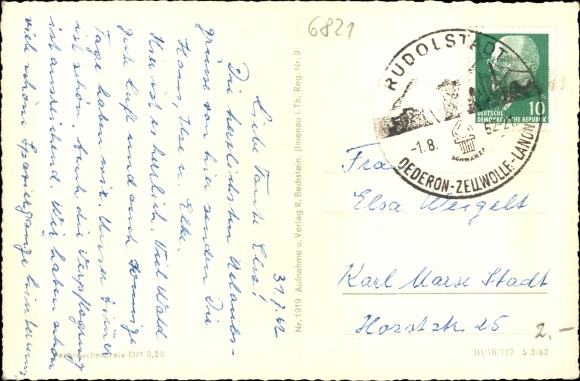 6821
31.7.62
Liebe Tante Elsa!
Die herzlichsten Urlaubs-
grüsse von hier senden Dir
Hans, Ilse u. Elke.
Hier ist es herlich. Viel Wald
gute Luft und auch sonnige
Tage haben wir. Unser Zimmer
ist schön. Auch die Verpflegung
ist ausreichend. Wir haben schon
viele schöne Spaziergänge hinter uns
Verbraucherpreis DM 0,20
Nr. 1919 Aufnahme u. Verlag R. Bechstein, Jlmenau i. Th. Reg.-Nr. 9
RUDOLSTADT
-1.8.
62-21
SCHWARZA
DEDERON-ZELLWOLLE-LANON
10
DEUTSCHE
DEMOKRATISCHE REPUBLIK
Frau
Elsa Weigelt
Karl Marx Stadt
Horststr. 25
2,-
III/18/117 S 3/62